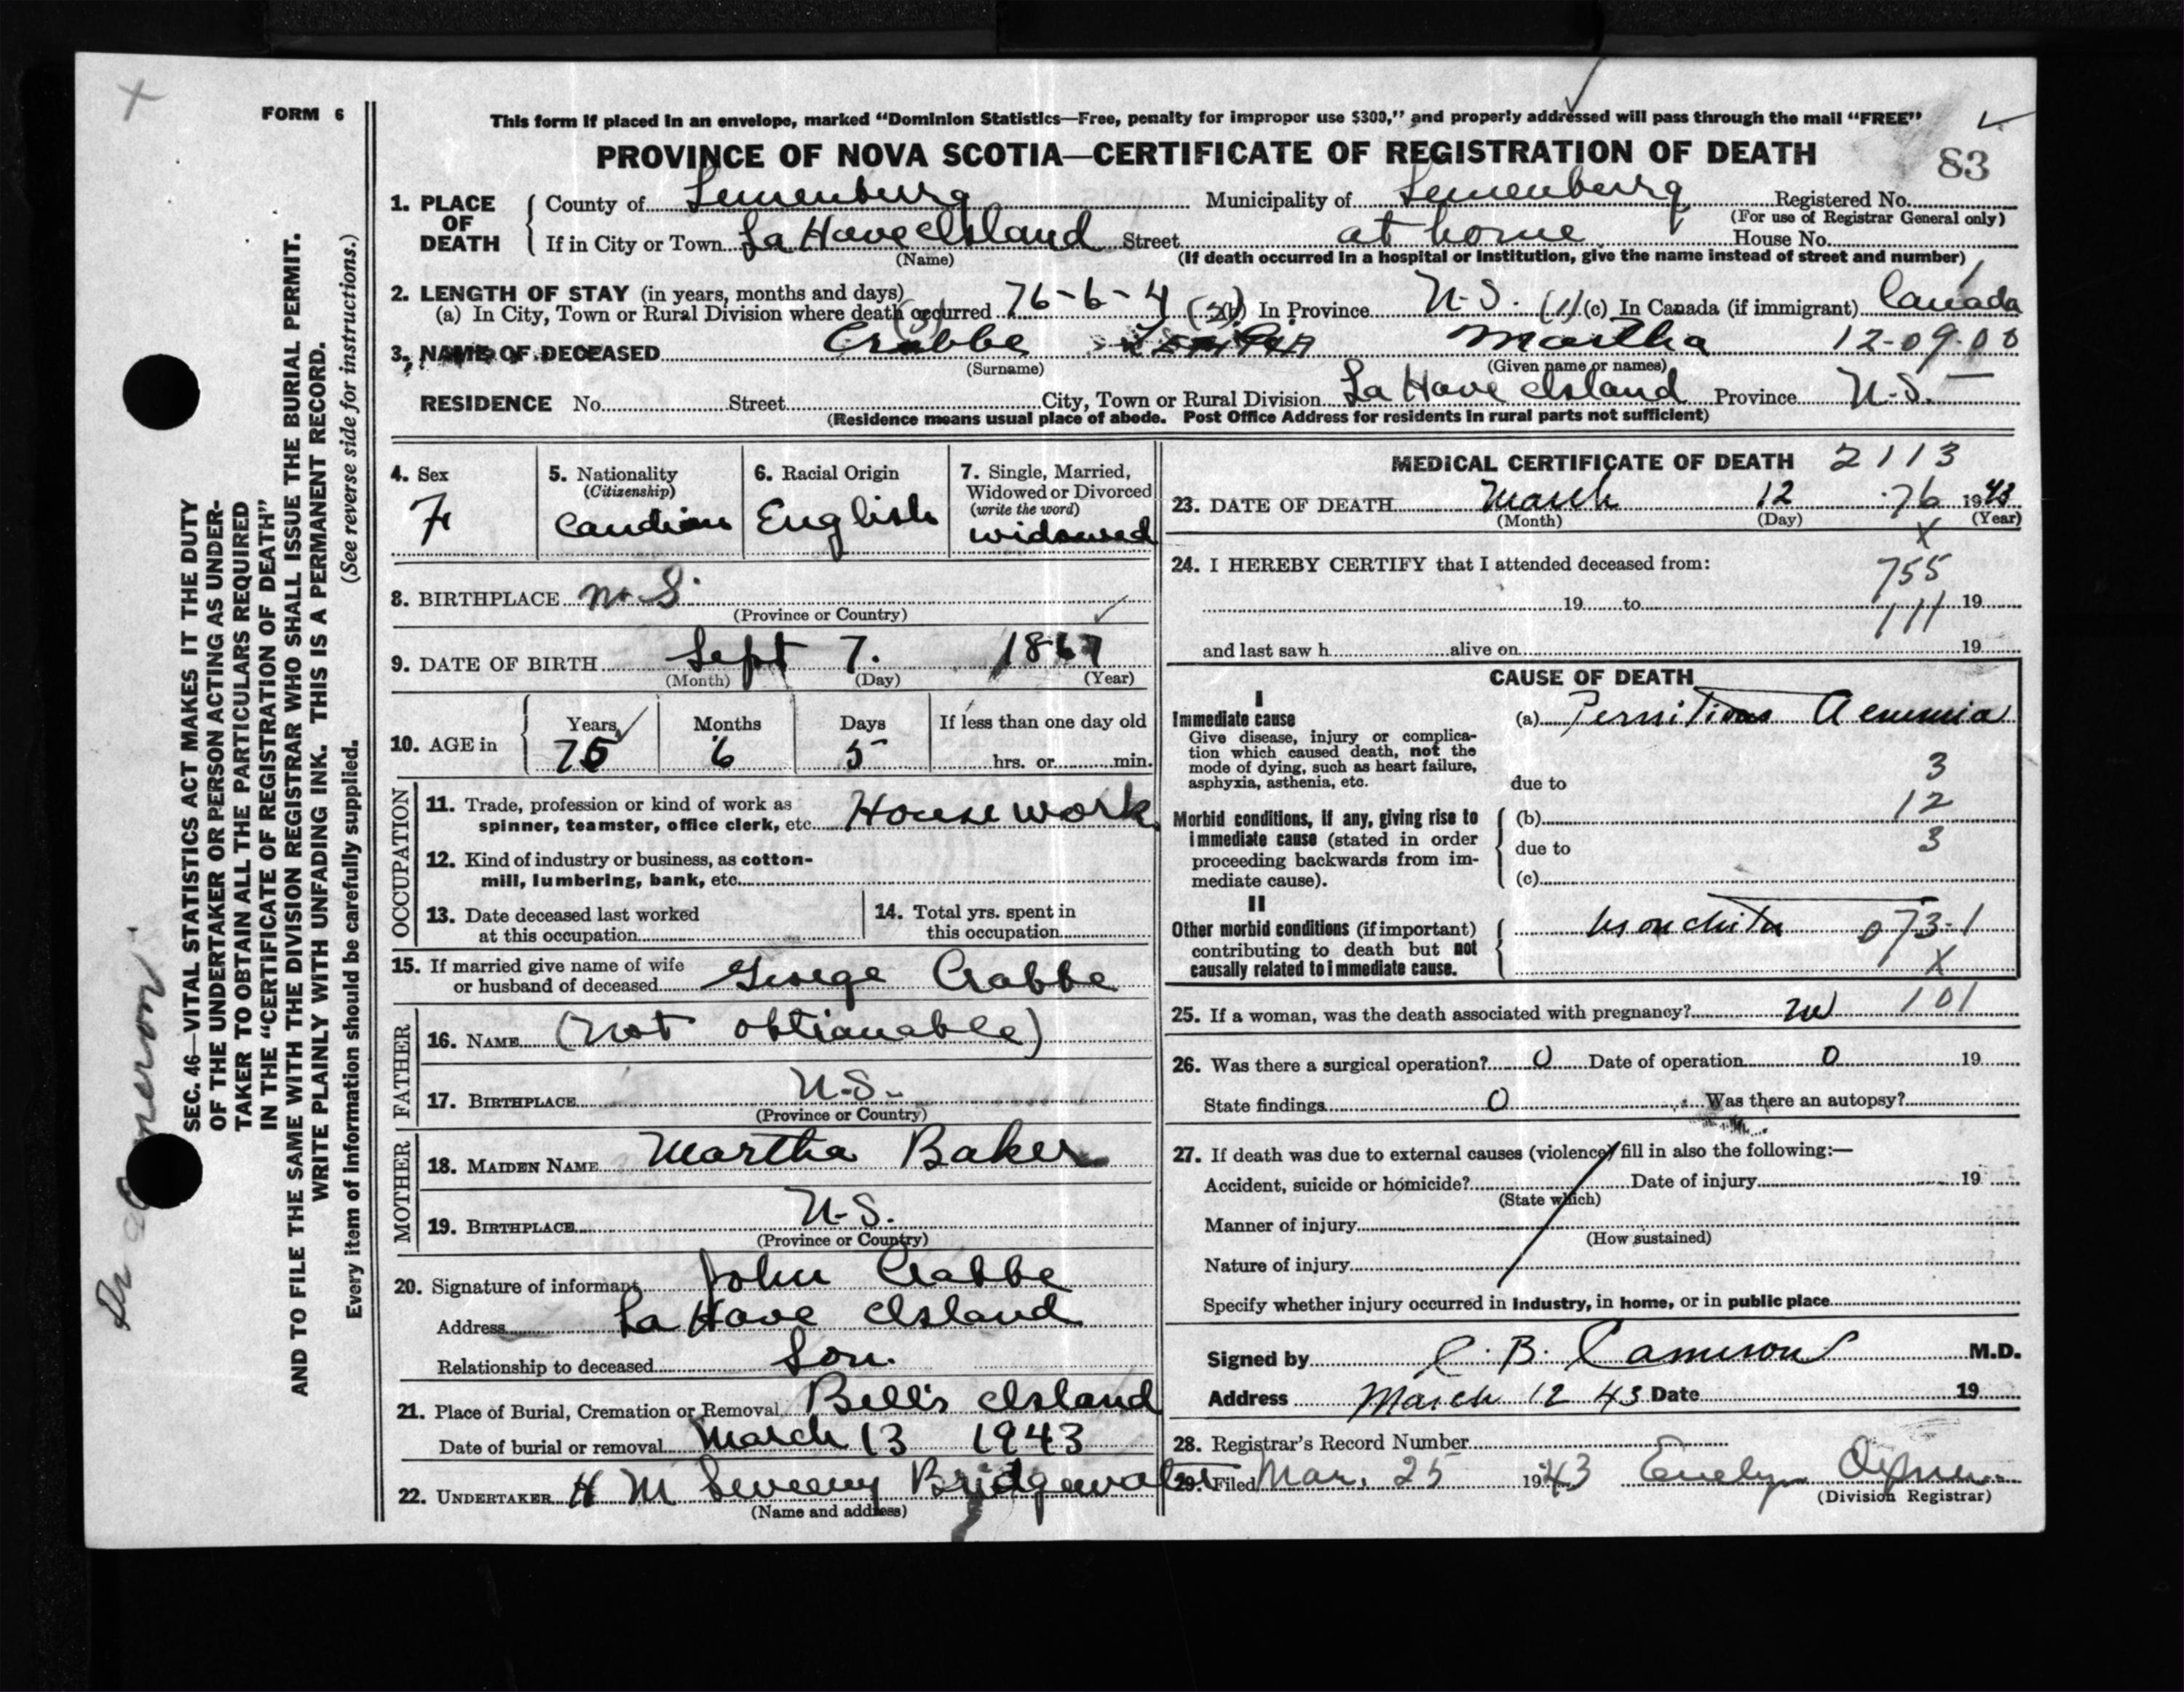 FORM 6
This form if placed in an envelope, marked “Dominion Statistics—Free, penalty for improper use $300,” and properly addressed will pass through the mail “FREE”
PROVINCE OF NOVA SCOTIA—CERTIFICATE OF REGISTRATION OF DEATH
83
1. PLACE OF DEATH
County of Lunenburg Municipality of Lunenburg Registered No.
(For use of Registrar General only)
If in City or Town La Have Island Street at home House No.
(Name) (If death occurred in a hospital or institution, give the name instead of street and number)
2. LENGTH OF STAY (in years, months and days)
(a) In City, Town or Rural Division where death occurred 76-6-4 (b) In Province N.S. (1) (c) In Canada (if immigrant) Canada
3. NAME OF DECEASED Crabbe Martha 12-09-00
(Surname) (Given name or names)
RESIDENCE No. Street City, Town or Rural Division La Have Island Province N.S.
(Residence means usual place of abode. Post Office Address for residents in rural parts not sufficient)
4. Sex
F
5. Nationality
(Citizenship)
Candian
6. Racial Origin
English
7. Single, Married,
Widowed or Divorced
(write the word)
widowed
8. BIRTHPLACE N.S.
(Province or Country)
9. DATE OF BIRTH Sept 7. 1867
(Month) (Day) (Year)
10. AGE in
Years Months Days If less than one day old
75 6 5 hrs. or min.
OCCUPATION
11. Trade, profession or kind of work as
spinner, teamster, office clerk, etc. House work
12. Kind of industry or business, as cotton-
mill, lumbering, bank, etc.
13. Date deceased last worked
at this occupation
14. Total yrs. spent in
this occupation
15. If married give name of wife
or husband of deceased George Crabbe
FATHER
16. NAME (Not obtianable)
17. BIRTHPLACE N.S.
(Province or Country)
MOTHER
18. MAIDEN NAME Martha Baker
19. BIRTHPLACE N.S.
(Province or Country)
20. Signature of informant John Crabbe
Address La Have Island
Relationship to deceased Son.
21. Place of Burial, Cremation or Removal Bell's Island
Date of burial or removal March 13 1943
22. UNDERTAKER H M Sweeny Bridgewater
(Name and address)
MEDICAL CERTIFICATE OF DEATH 2113
23. DATE OF DEATH March 12 76 1943
(Month) (Day) (Year)
X
24. I HEREBY CERTIFY that I attended deceased from:
755
19 to 19
111
and last saw h alive on 19
CAUSE OF DEATH
I
Immediate cause
Give disease, injury or complica-
tion which caused death, not the
mode of dying, such as heart failure,
asphyxia, asthenia, etc.
(a) Pernitious Aenumia
due to
3
Morbid conditions, if any, giving rise to
immediate cause (stated in order
proceeding backwards from im-
mediate cause).
(b) 12
due to 3
(c)
II
Other morbid conditions (if important)
contributing to death but not
causally related to immediate cause.
073-1
X
25. If a woman, was the death associated with pregnancy? 101
26. Was there a surgical operation? 0 Date of operation 0 19
State findings 0 Was there an autopsy?
27. If death was due to external causes (violence) fill in also the following:—
Accident, suicide or homicide? Date of injury 19
(State which)
Manner of injury
(How sustained)
Nature of injury
Specify whether injury occurred in Industry, in home, or in public place
Signed by C. B. Cameron M.D.
Address March 12 43 Date 19
28. Registrar's Record Number
29. Filed Mar. 25 1943 Evelyn
(Division Registrar)
SEC. 46—VITAL STATISTICS ACT MAKES IT THE DUTY
OF THE UNDERTAKER OR PERSON ACTING AS UNDER-
TAKER TO OBTAIN ALL THE PARTICULARS REQUIRED
IN THE “CERTIFICATE OF REGISTRATION OF DEATH”
AND TO FILE THE SAME WITH THE DIVISION REGISTRAR WHO SHALL ISSUE THE BURIAL PERMIT.
WRITE PLAINLY WITH UNFADING INK. THIS IS A PERMANENT RECORD.
Every item of information should be carefully supplied. (See reverse side for instructions.)